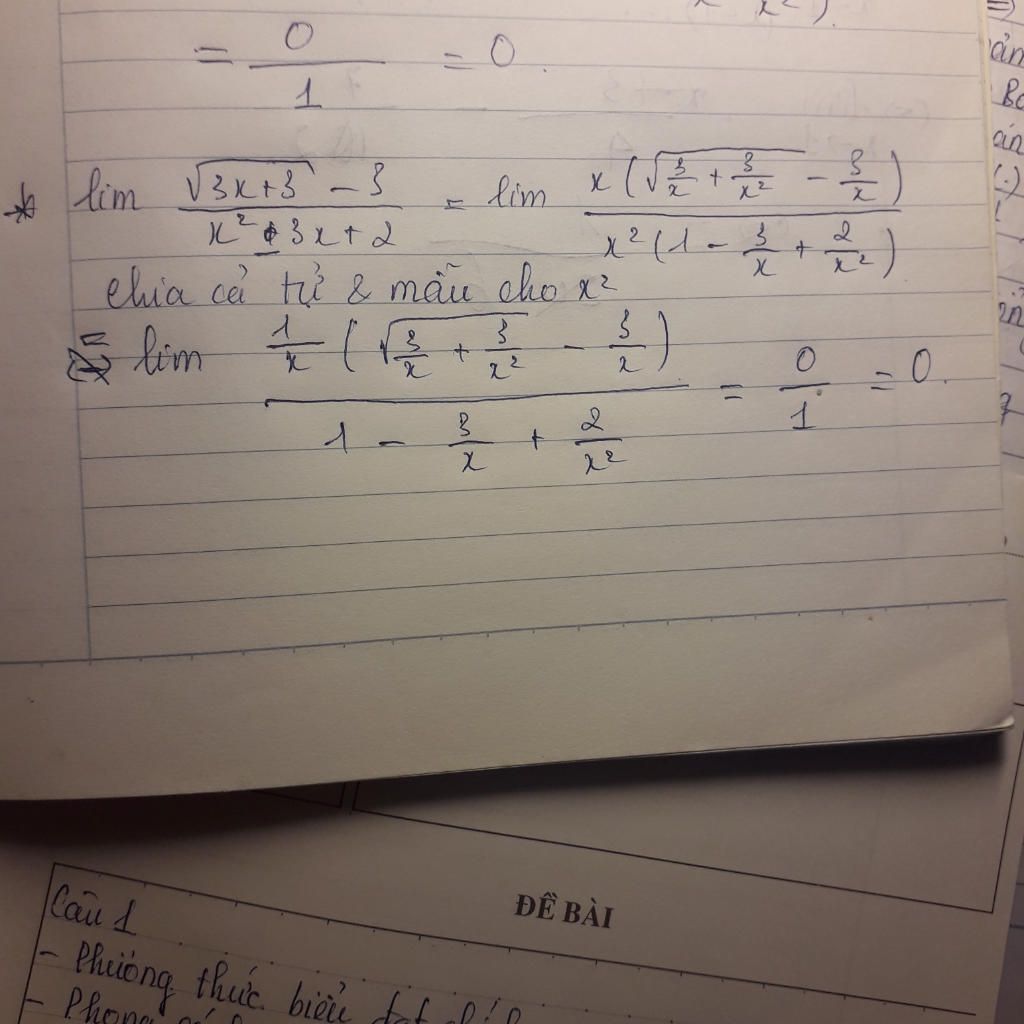 x²).
= 0/1 = 0.
* lim (√(3x+3) - 3)/(x² - 3x + 2) = lim x(√(3/x + 3/x²) - 3/x)/x²(1 - 3/x + 2/x²)
chia cả tử & mẫu cho x²
= lim 1/x (√(3/x + 3/x²) - 3/x)/(1 - 3/x + 2/x²) = 0/1 = 0.
ĐỀ BÀI
Câu 1
- Phương thức biểu đạt
- Phong